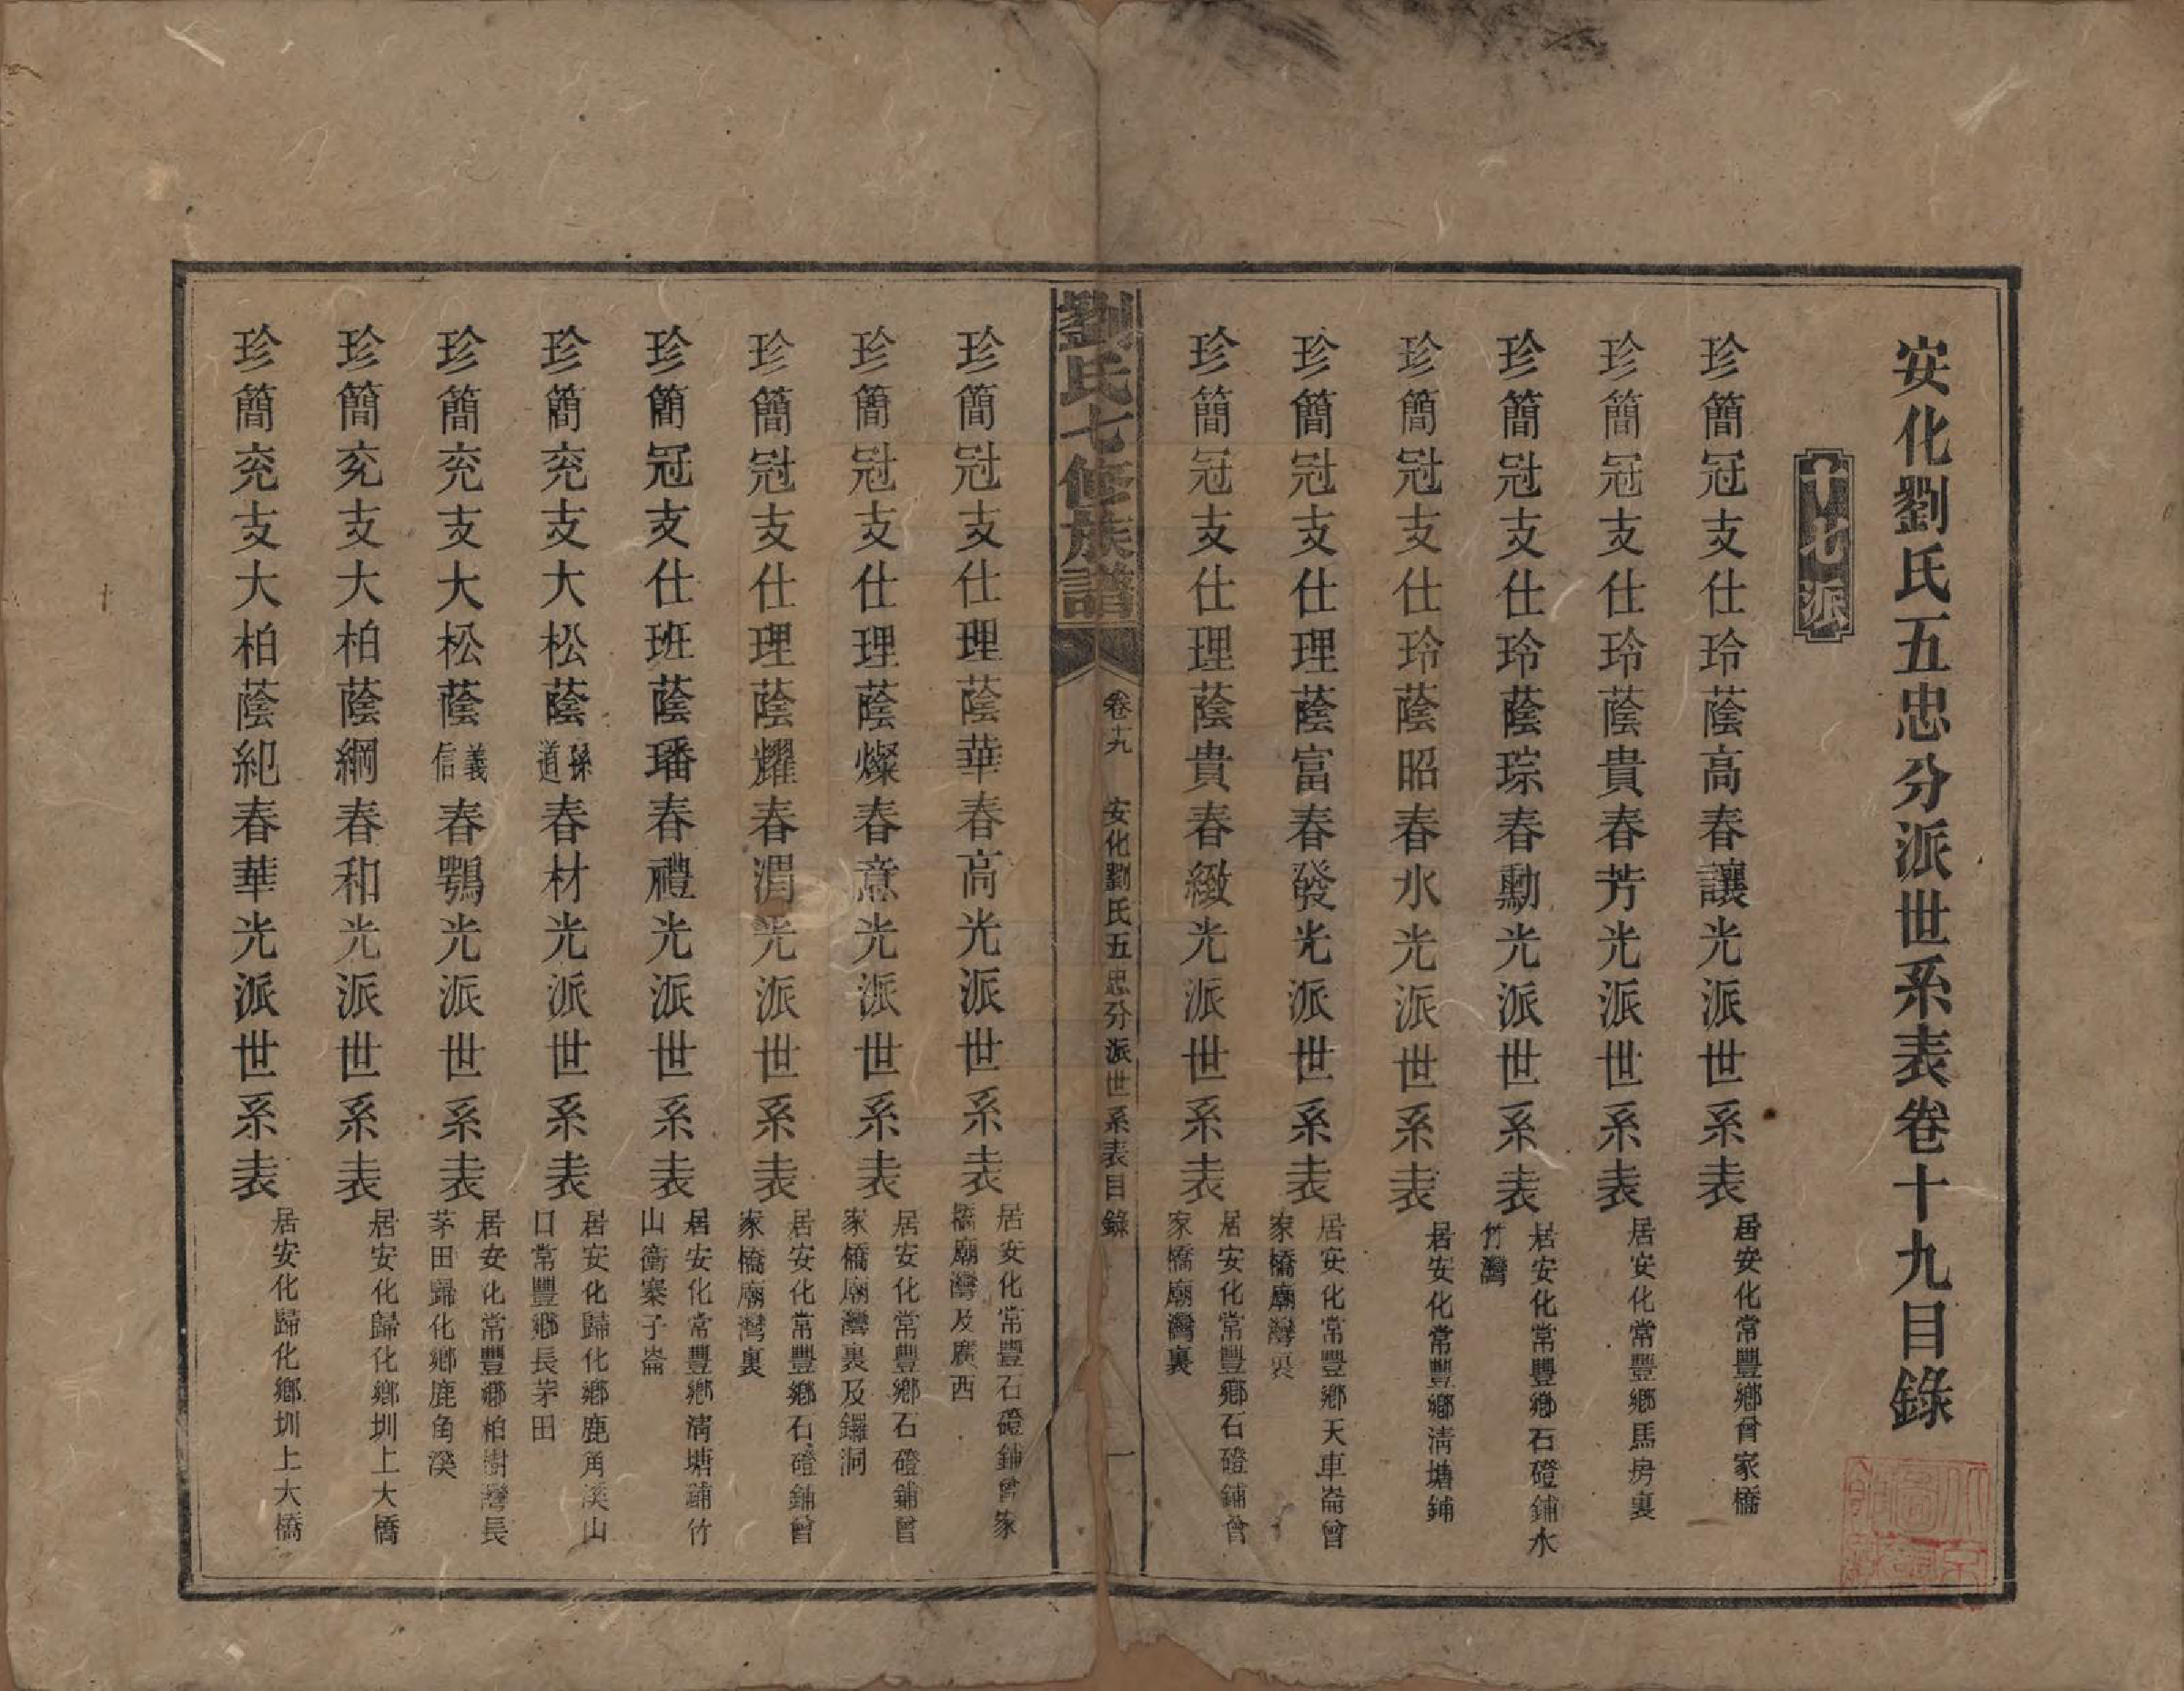 安化劉氏五忠分派世系表卷十九目錄
十七派
珍簡冠支仕玲蔭高春讓光派世系表 居安化常豐鄉曾家橋
珍簡冠支仕玲蔭貴春芳光派世系表 居安化常豐鄉馬房裏
珍簡冠支仕玲蔭琮春勳光派世系表 居安化常豐鄉石磴鋪水竹灣
珍簡冠支仕玲蔭昭春水光派世系表 居安化常豐鄉清塘鋪
珍簡冠支仕理蔭富春發光派世系表 居安化常豐鄉天車崙曾家橋廟灣裏
珍簡冠支仕理蔭貴春緻光派世系表 居安化常豐鄉石磴鋪曾家橋廟灣裏
劉氏七修族譜 卷十九 安化劉氏五忠分派世系表目錄 一
珍簡冠支仕理蔭華春高光派世系表 居安化常豐石磴鋪曾家橋廟灣及廣西
珍簡冠支仕理蔭燦春意光派世系表 居安化常豐鄉石磴鋪曾家橋廟灣裏及鑼洞
珍簡冠支仕理蔭耀春渭光派世系表 居安化常豐鄉石磴鋪曾家橋廟灣裏
珍簡冠支仕班蔭璠春禮光派世系表 居安化常豐鄉清塘鋪竹山衝寨子崙
珍簡兖支大松蔭孫道春材光派世系表 居安化歸化鄉鹿角溪山口常豐鄉長茅田
珍簡兖支大松蔭義信春鶚光派世系表 居安化常豐鄉柏樹灣長茅田歸化鄉鹿角溪
珍簡兖支大柏蔭綱春和光派世系表 居安化歸化鄉圳上大橋
珍簡兖支大柏蔭紀春華光派世系表 居安化歸化鄉圳上大橋